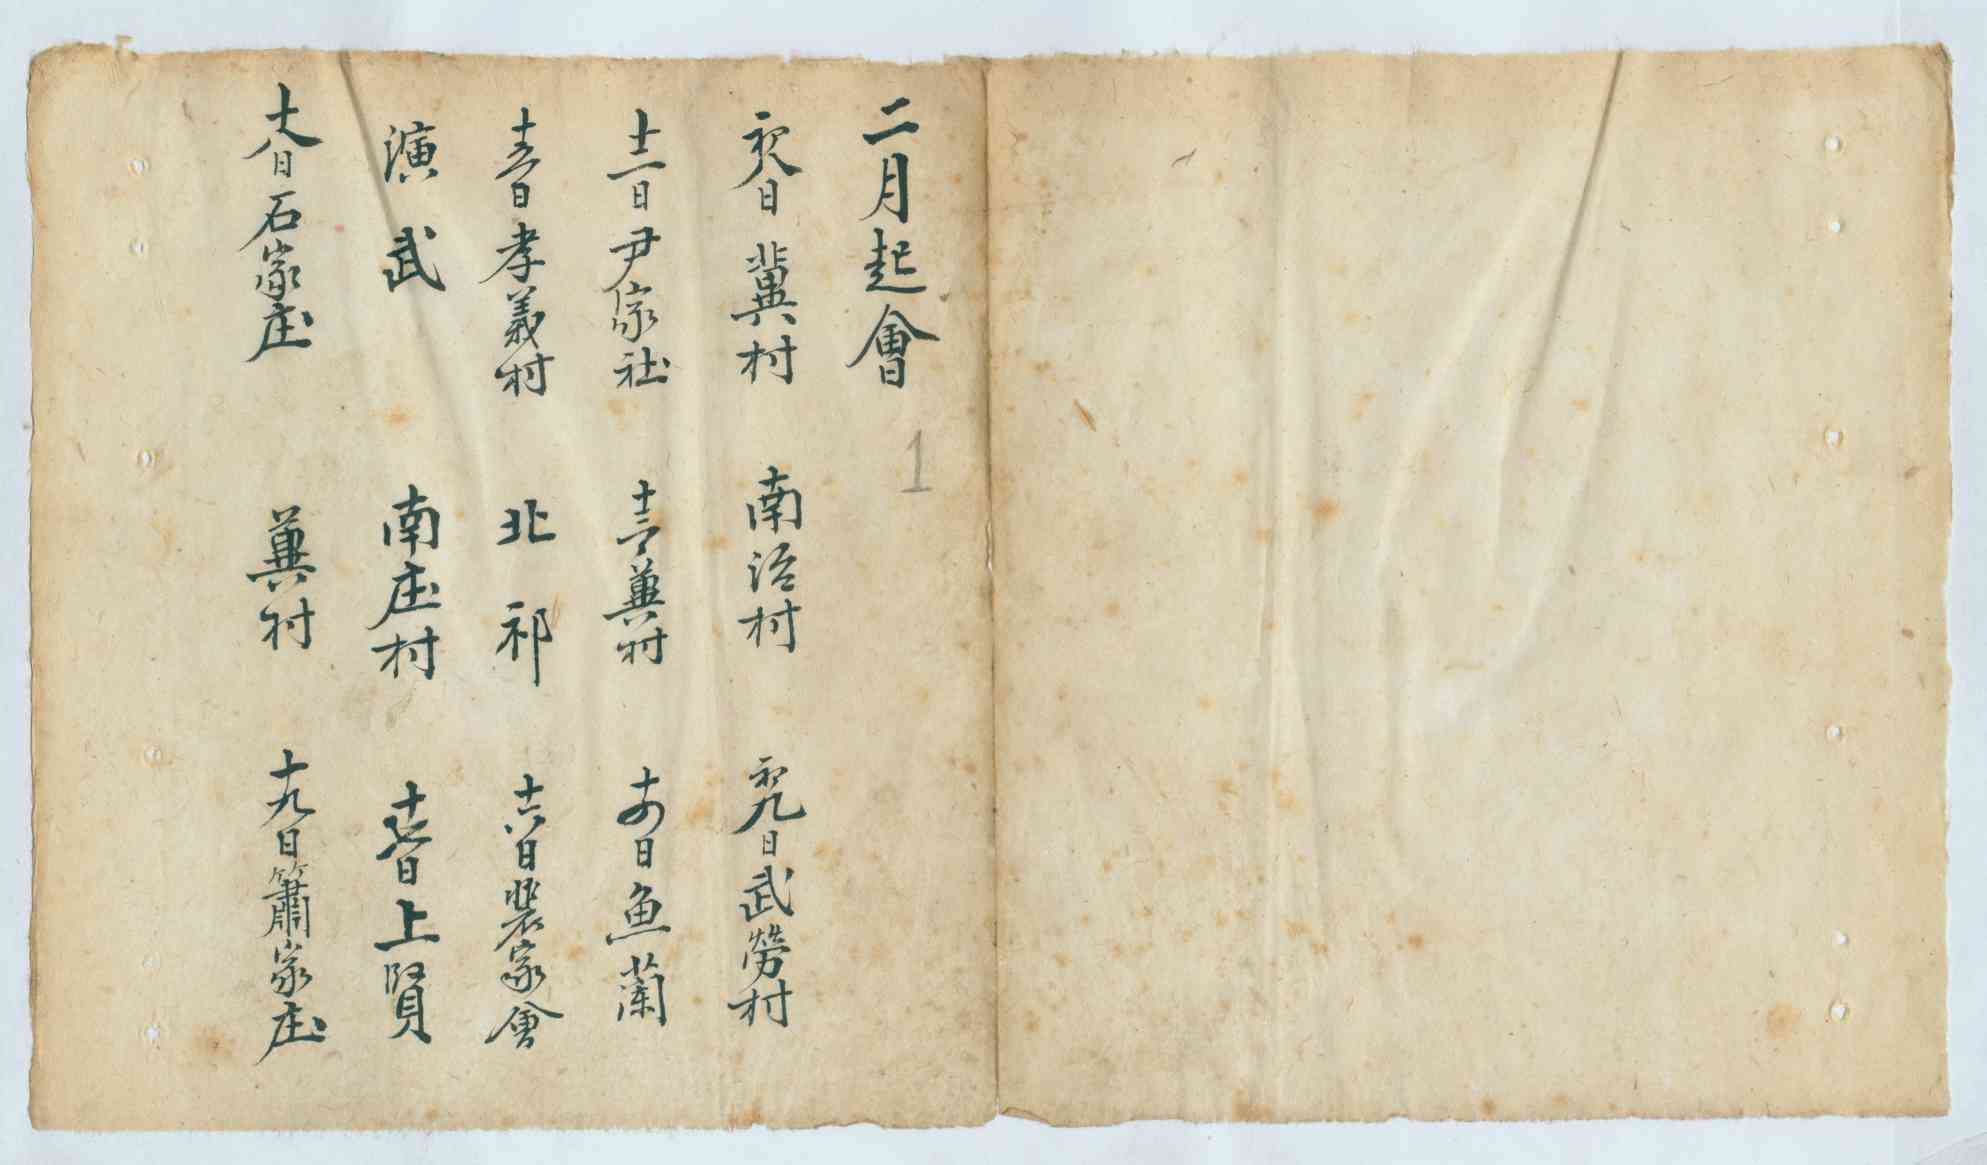 二月起會
1
初八日冀村 南治村 初九日武勞村
十一日尹家社 十三日冀村 十四日魚蘭
十五日孝義村 北祁 十六日裴家會
演武 南庄村 十七日上賢
十八日石家庄 冀村 十九日簫家庄